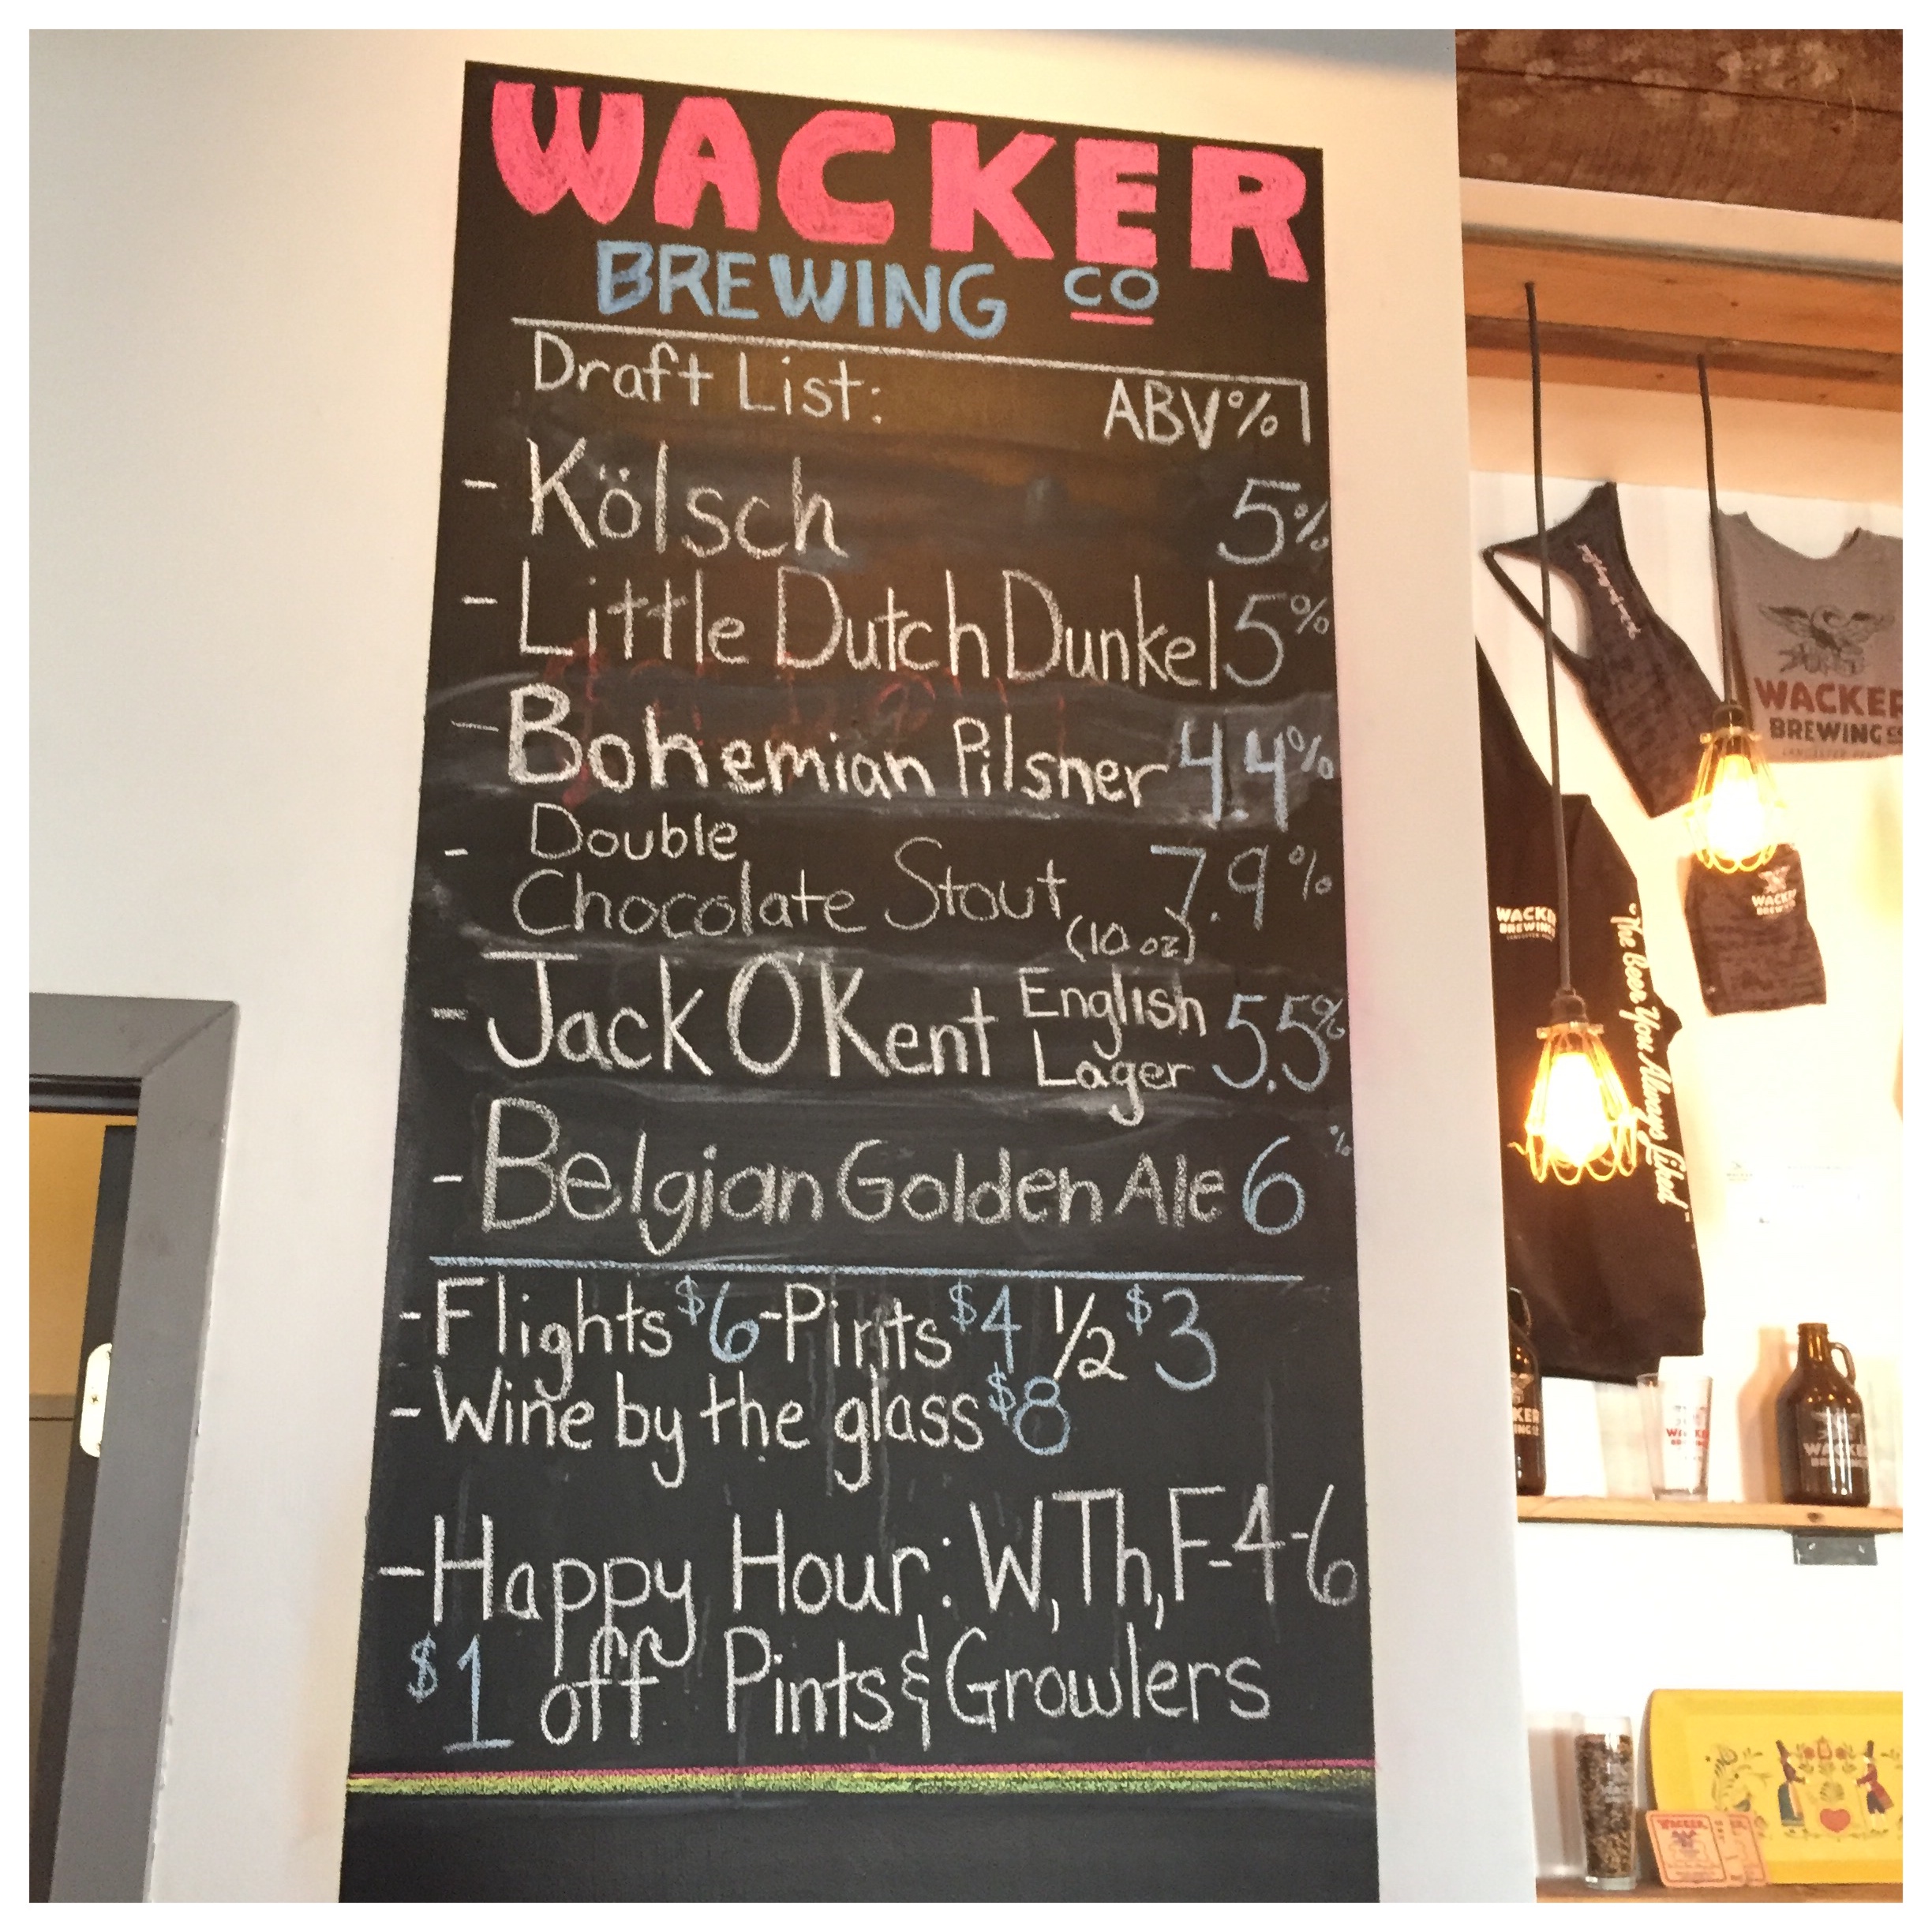 WACKER
BREWING CO
Draft List: ABV%
- Kölsch 5%
- Little Dutch Dunkel 5%
- Bohemian Pilsner 4.4%
- Double
Chocolate Stout 7.9%
(10 oz)
- Jack O'Kent English Lager 5.5%
- Belgian Golden Ale 6%
- Flights $6 - Pints $4 1/2 $3
- Wine by the glass $8
- Happy Hour: W, Th, F - 4-6
$1 off Pints & Growlers
WACKER
BREWING CO
WACKER
BREWING
"The Beer You Always Liked"
WACKER
BREWING
WACKER
BREWING
WACKER